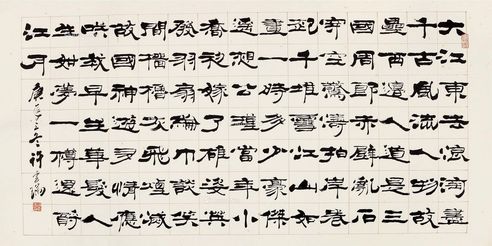 大江東去浪淘盡
千古風流人物故
壘西邊人道是三
國周郎赤壁亂石
穿空驚濤拍岸卷
起千堆雪江山如
畫一時多少豪傑
遙想公瑾當年小
喬初嫁了雄姿英
發羽扇綸巾談笑
間檣櫓灰飛煙滅
故國神遊多情應
笑我早生華髮人
生如夢一樽還酹
江月